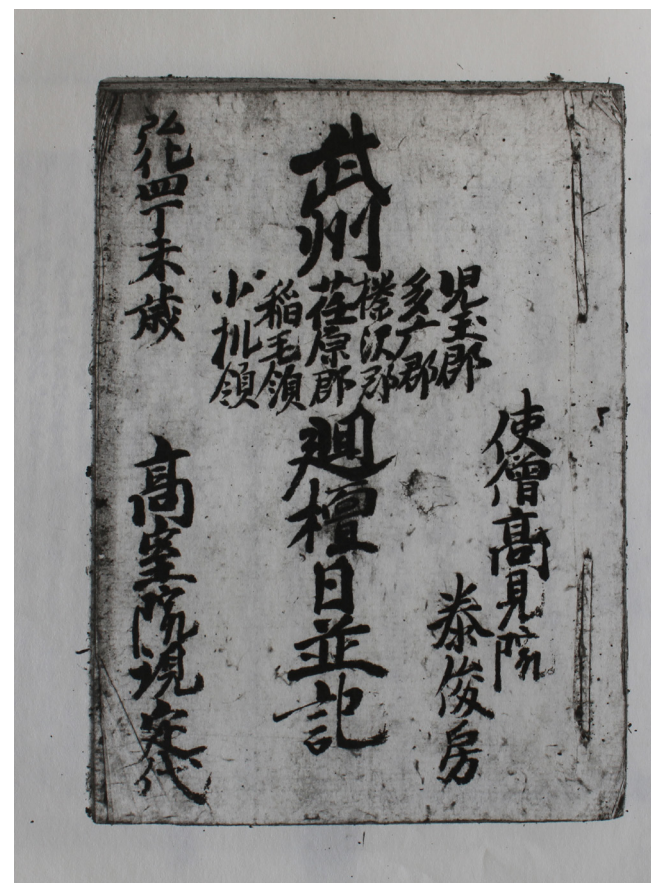 使僧高見院
泰俊房
武州
児玉郡
多广郡
榛沢郡
荏原郡
稲毛領
小机領
廻檀日並記
弘化四丁未歳
高室院現定代